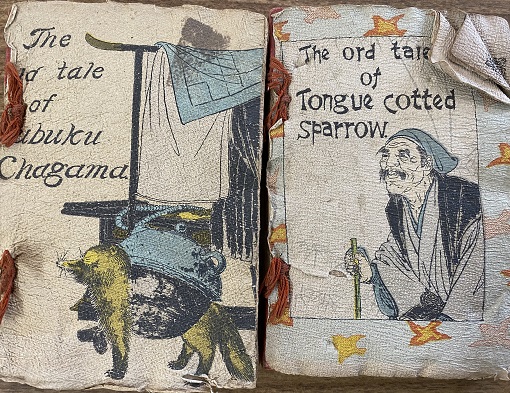 The
tale
of
Chagama
The ord tale
of
Tongue cotted
sparrow.